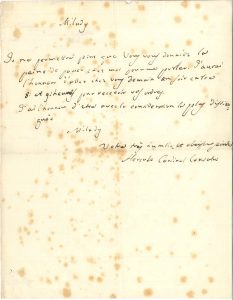 Milady
Je ne permettrai point que Vous vous donniez la
peine de passer chez moi pour me parler. J'aurai
l'honneur d'aller chez vous demain au soir entre
8 et 9 heures par recevoir vos ordres.
J'ai l'honneur d'etre avec la consideration la plus distin
guée
Milady
Votre très humble et obeissant serviteur
Hercule Cardinal Consalvi